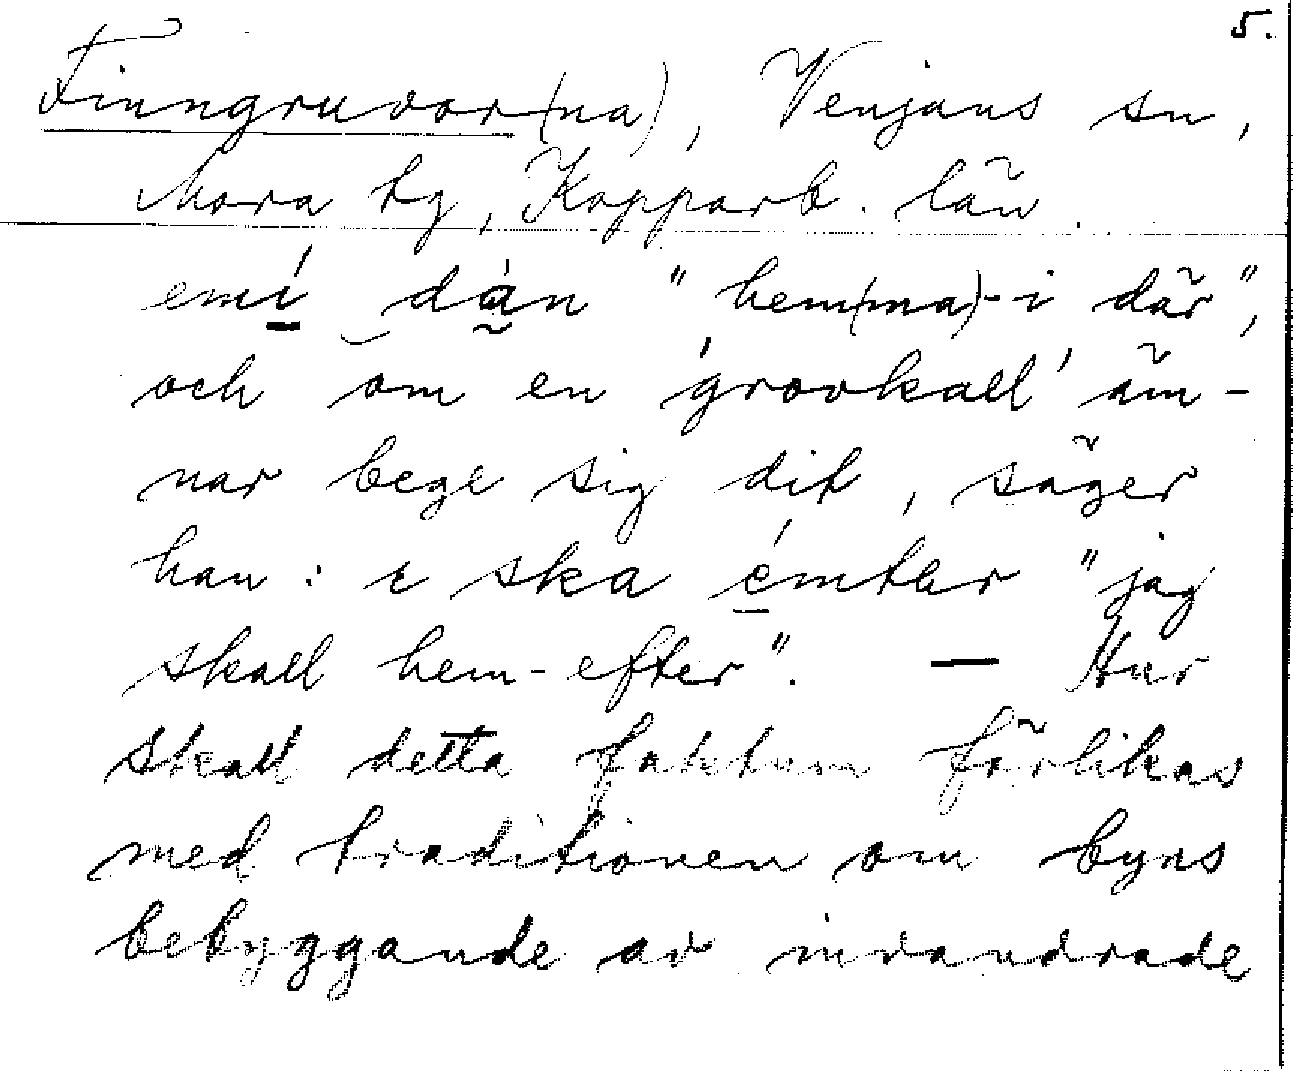 5.
Finngruvor(na), Venjans sn,
Mora tg, Kopparb. län.
emi̠ dá̰n "hem(ma)-i där",
och om en 'grovkall' äm-
nar bege sig dit, säger
han: e ska é̠mtər "jag
skall hem-efter". — Hur
skall detta faktum förlikas
med traditionen om byns
bebyggande av invandrade